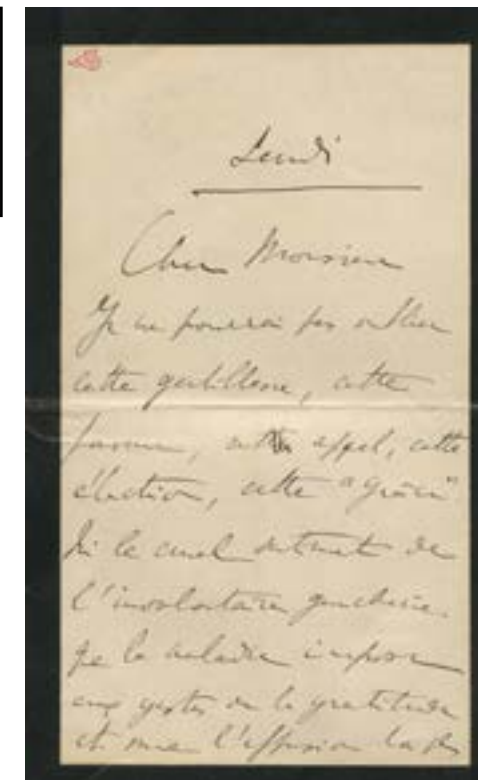 Lundi
Cher Monsieur
Je ne pourrai pas oublier
cette gentillesse, cette
faveur, cet appel, cette
élection, cette "grâce"
Ni le cruel
l'involontaire gaucherie
que la maladie impose
aux gestes de la gratitude
et une l'effusion